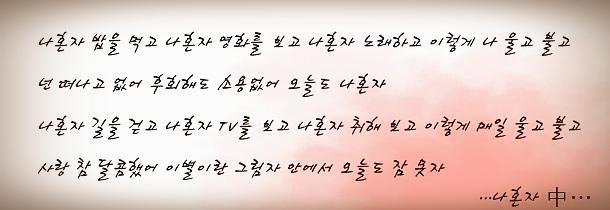 나혼자 밥을 먹고 나혼자 영화를 보고 나혼자 노래하고 이렇게 나 울고 불고
넌 떠나고 없어 후회해도 소용없어 오늘도 나혼자
나혼자 길을 걷고 나혼자 TV를 보고 나혼자 취해 보고 이렇게 매일 울고 불고
사랑 참 달콤했어 이별이란 그림자 안에서 오늘도 잠 못자
...나혼자 中...